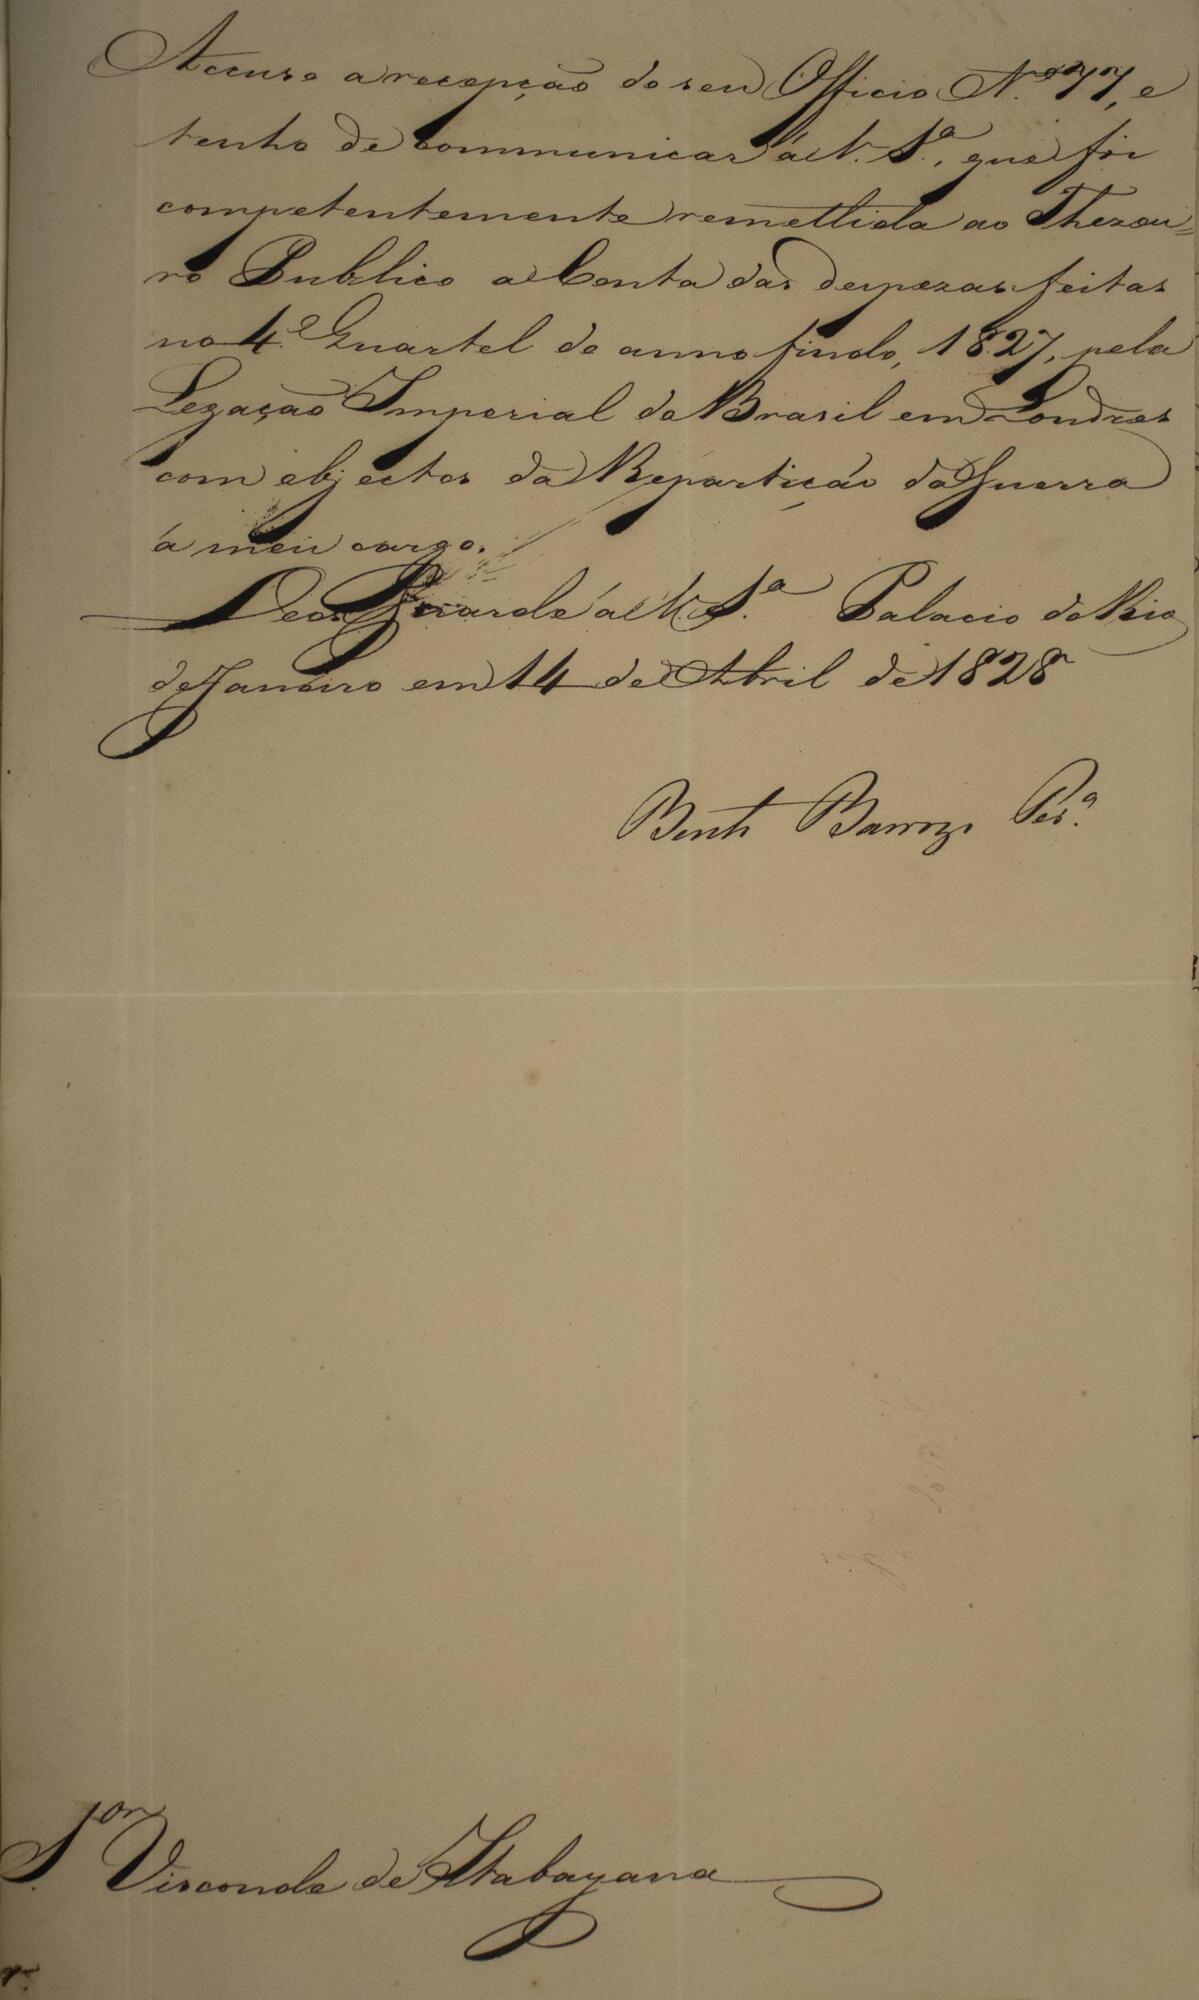 Accuso a recepção do seu Officio N.º 77, e
tenho de communicar á V. S.ª, que foi
competentemente remettida ao Thezou=
ro Publico a Conta das despezas feitas
no 4.º Quartel do anno findo, 1827, pela
Legação Imperial do Brasil em Londres
com objectos da Repartição da Guerra
á meu cargo.
Deos Guarde á V. S.ª Palacio do Rio
de Janeiro em 14 de Abril de 1828
Bento Barrozo Per.ª
S.or Visconde de Itabayana